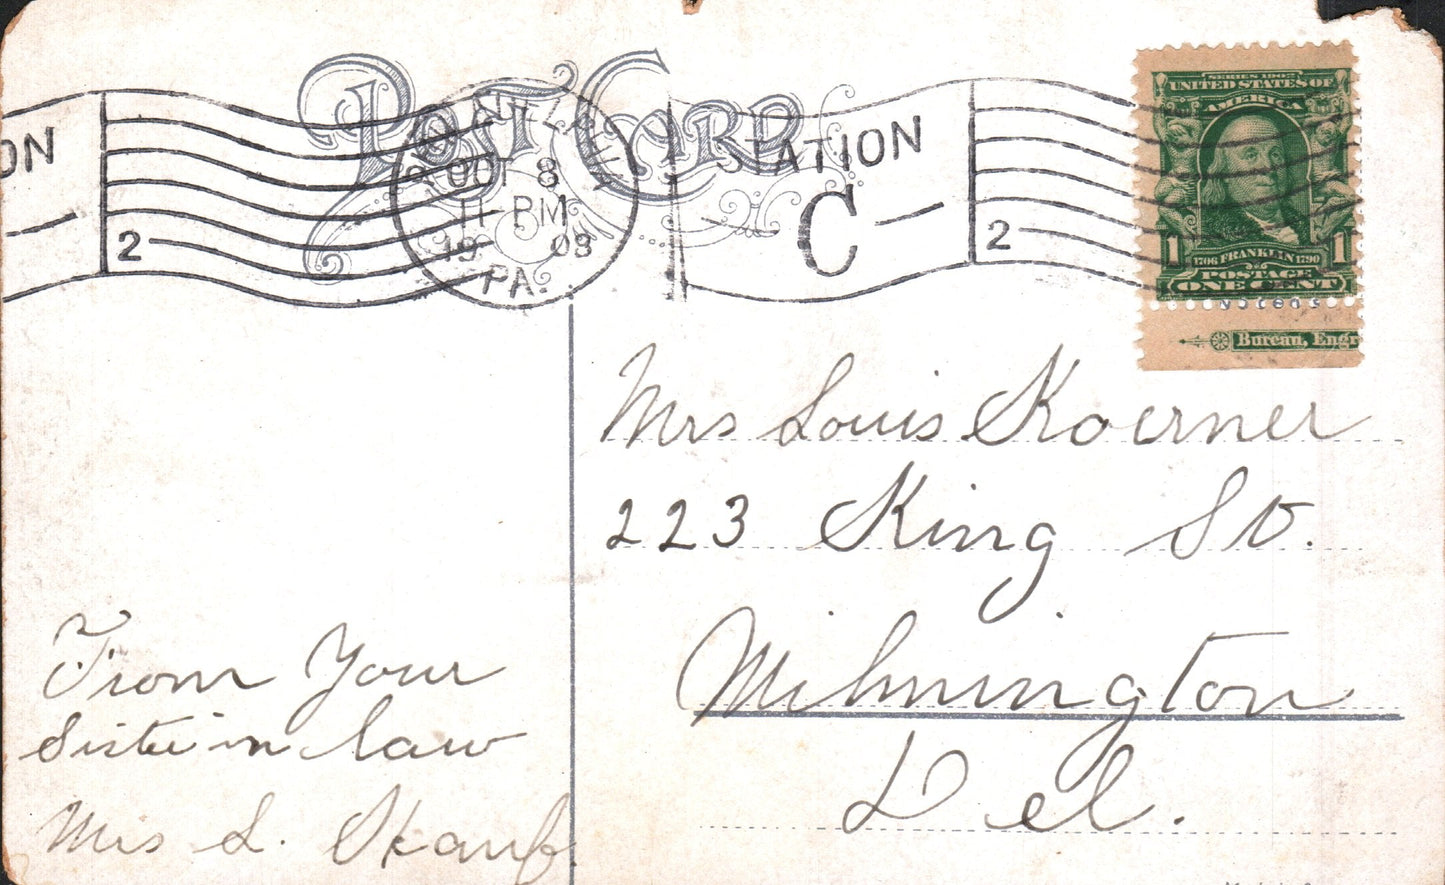 Post Card
ON
2
OCT 8
11 PM
19 08
PA.
STATION
C
2
SERIES 1902
UNITED STATES OF
AMERICA
1 1706 FRANKLIN 1790 1
POSTAGE
ONE CENT
Bureau, Engr
Mrs Louis Koerner
223 King St.
Wilmington
Del.
From Your
Sister in law
Mrs L.